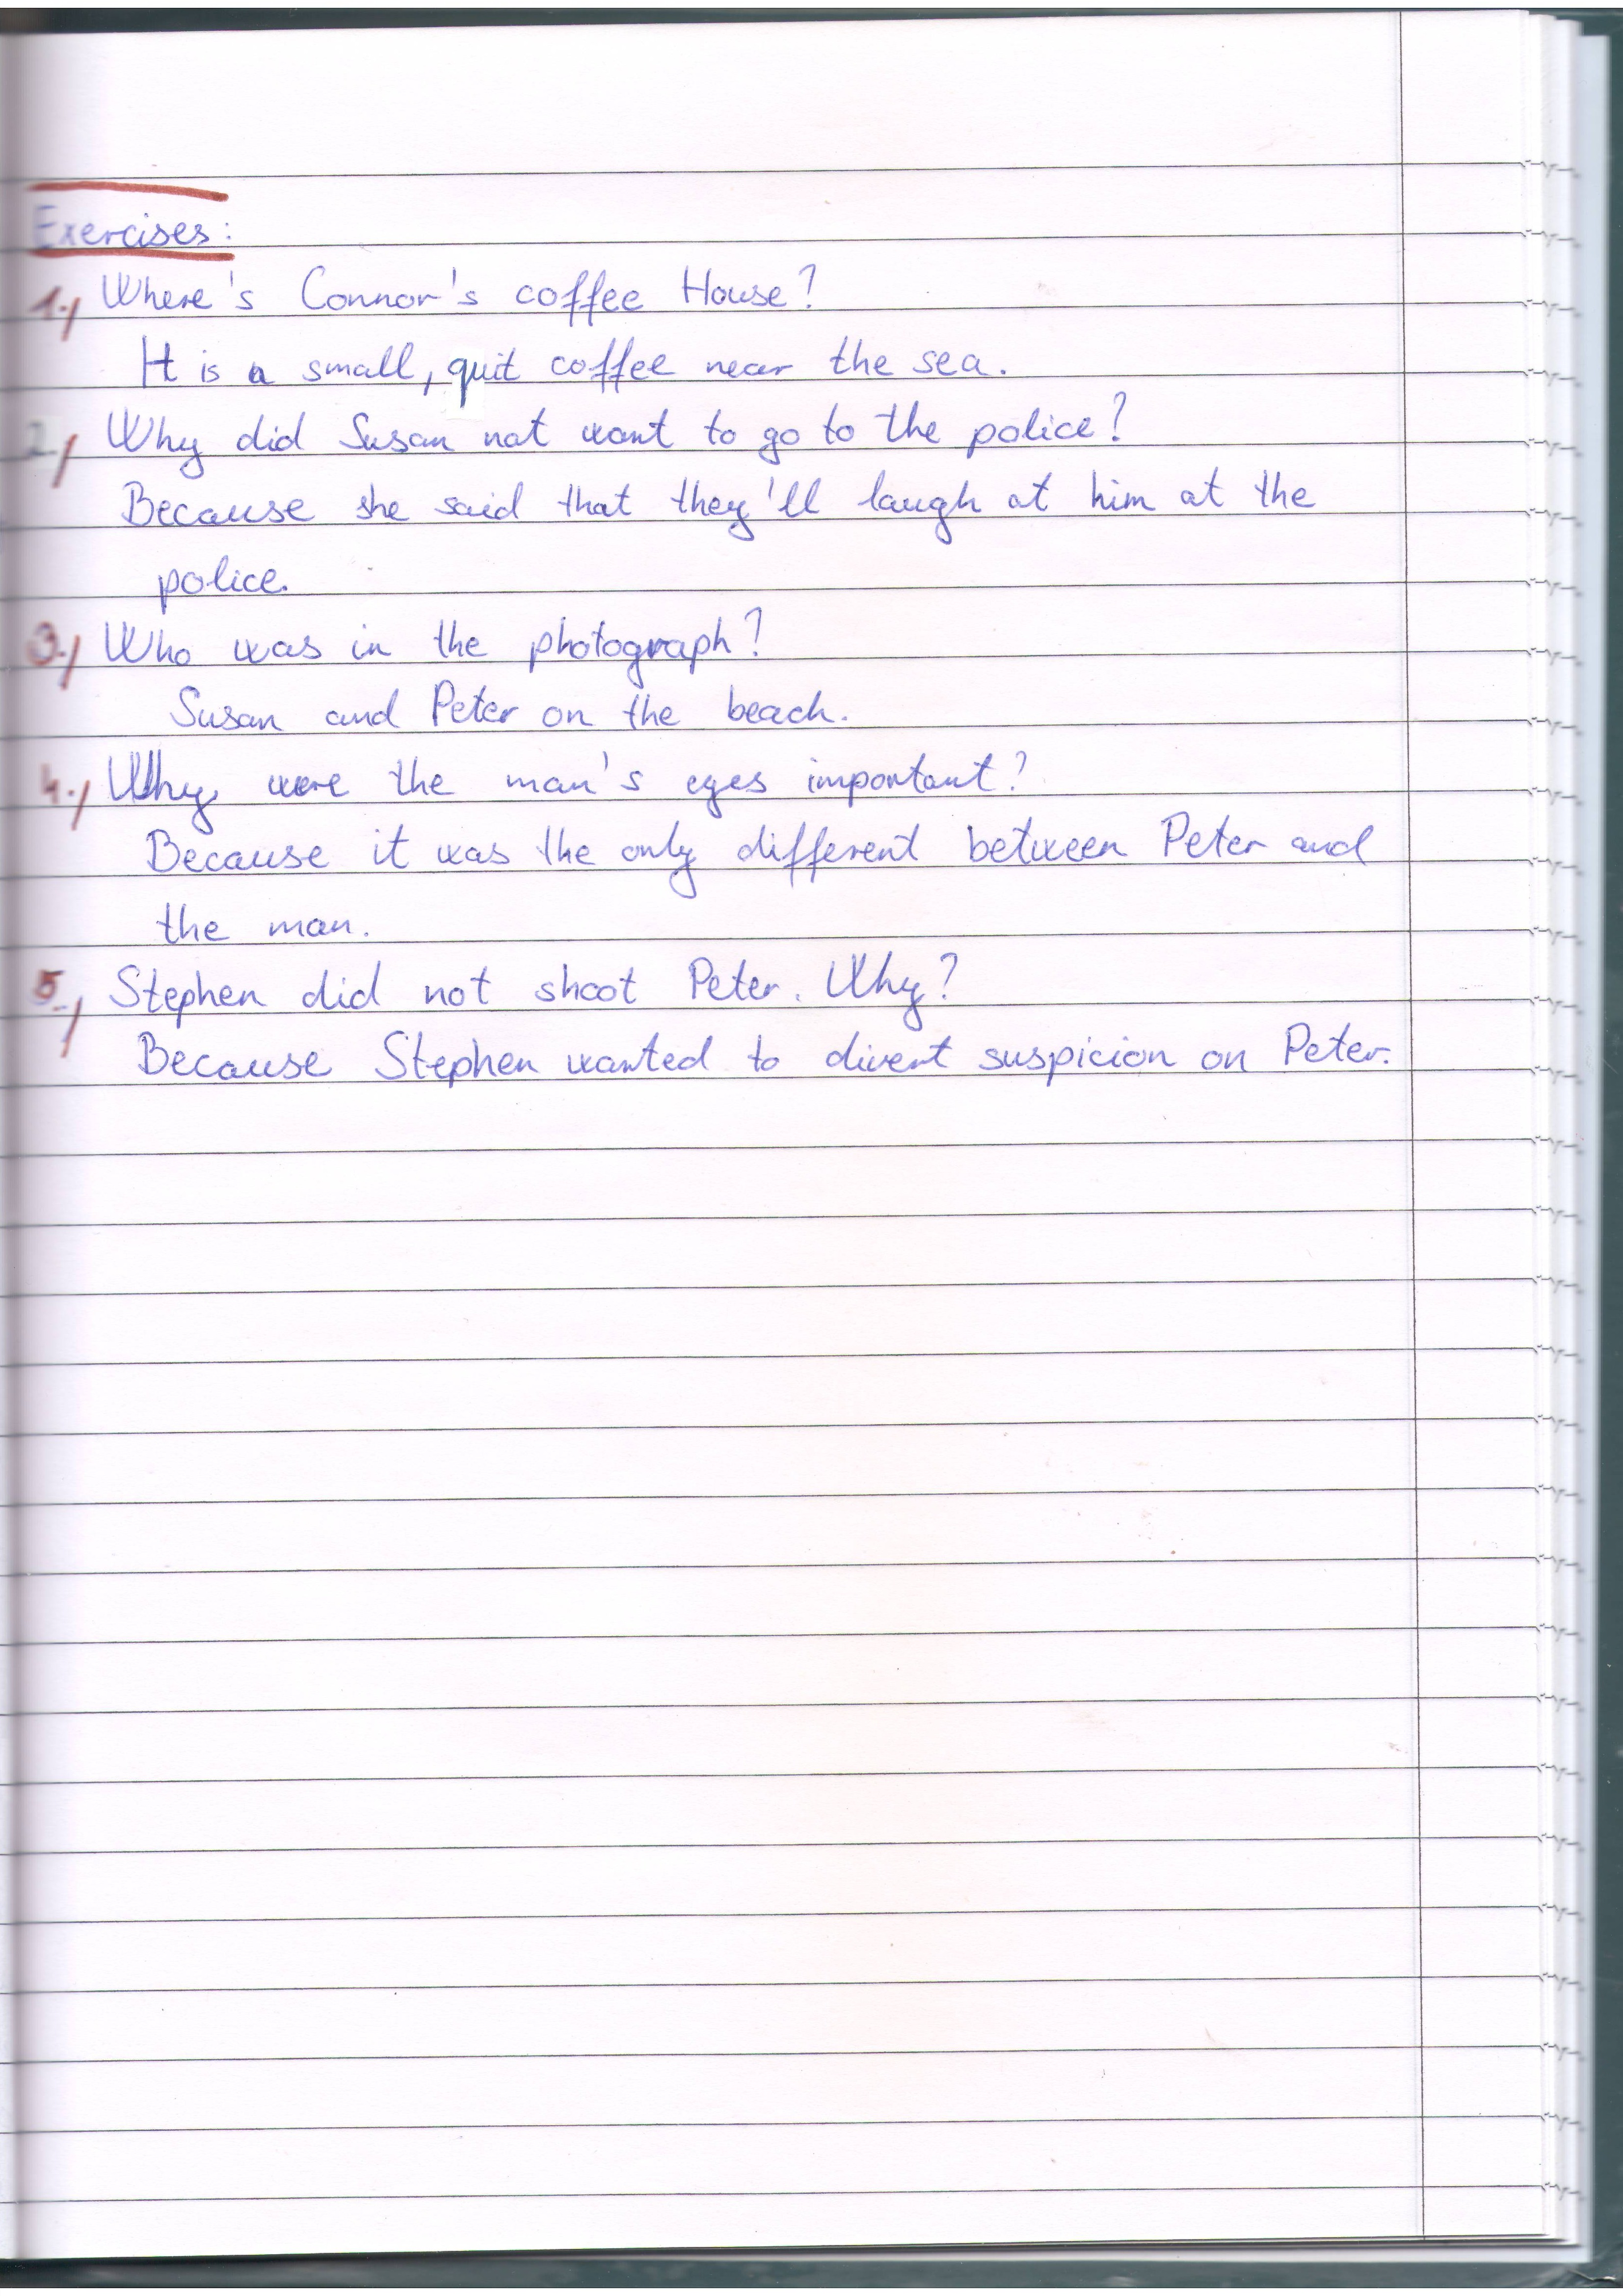 Exercises:
1./ Where's Connor's coffee House?
It is a small, quit coffee near the sea.
2./ Why did Susan not want to go to the police?
Because she said that they'll laugh at him at the
police.
3./ Who was in the photograph?
Susan and Peter on the beach.
4./ Why were the man's eyes important?
Because it was the only different between Peter and
the man.
5./ Stephen did not shoot Peter. Why?
Because Stephen wanted to divert suspicion on Peter.